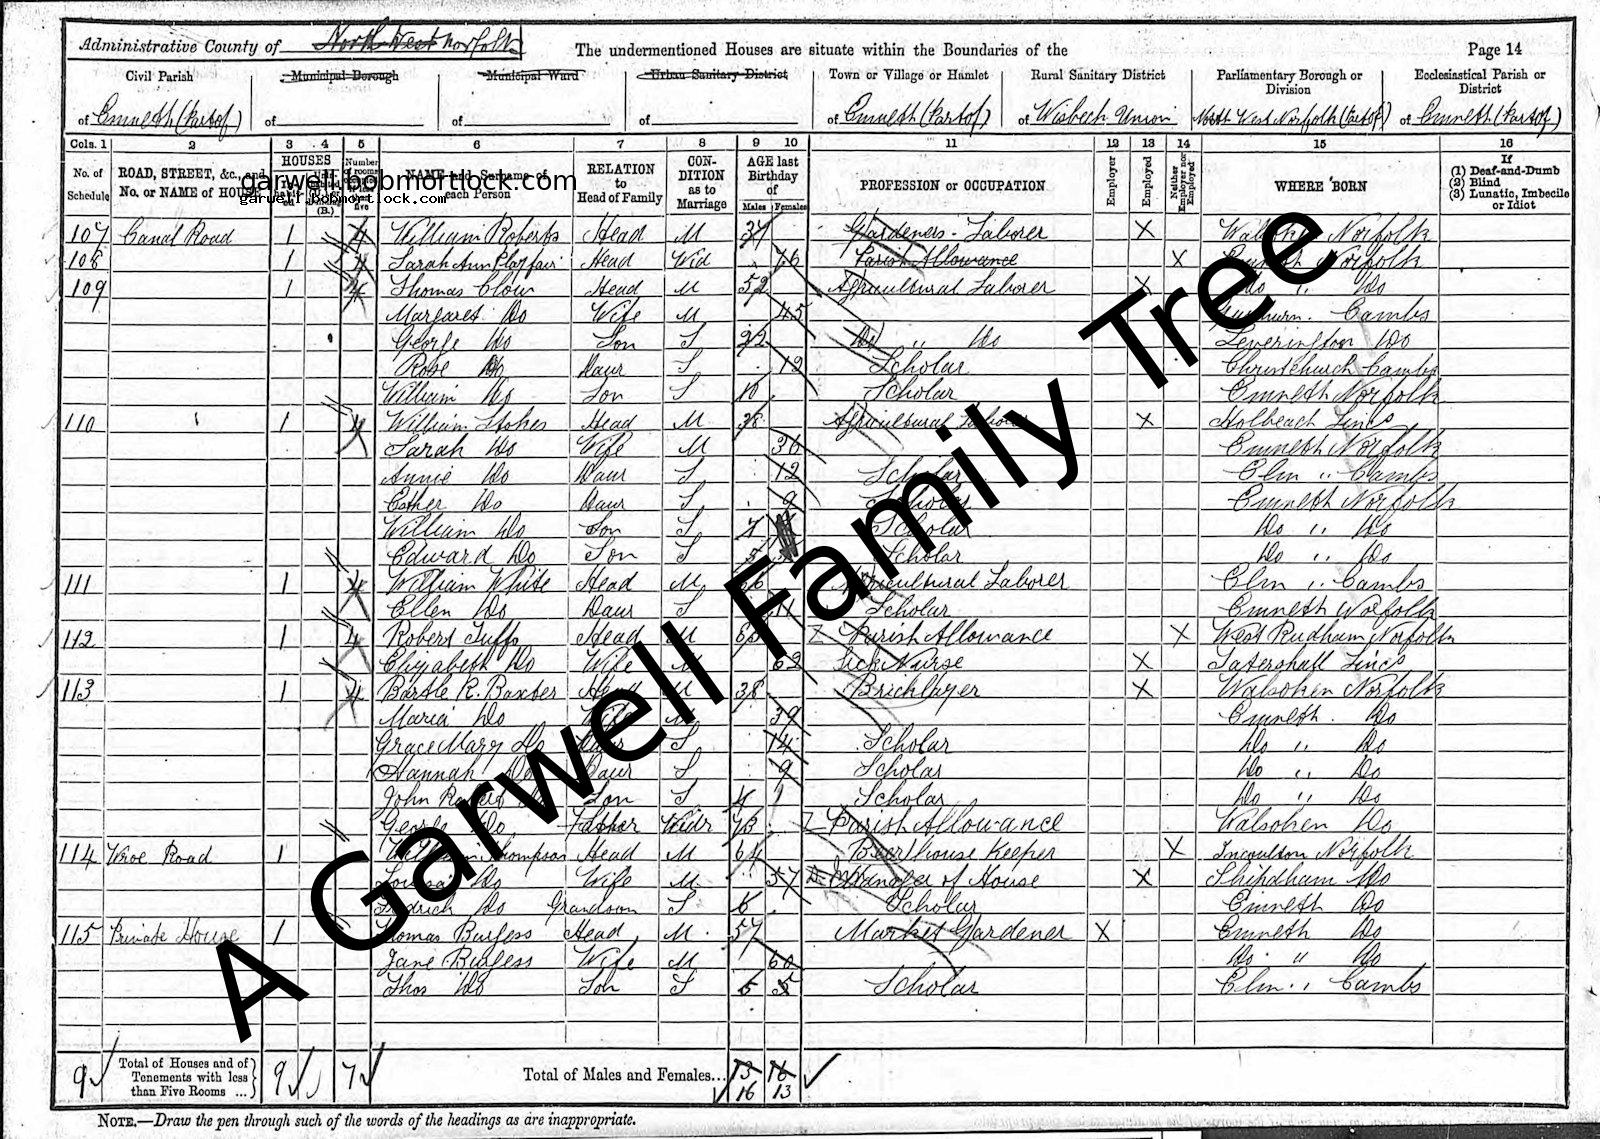 Administrative County of North West Norfolk
The undermentioned Houses are situate within the Boundaries of the
Page 14
Civil Parish
Municipal Borough
Municipal Ward
Urban Sanitary District
Town or Village or Hamlet
Rural Sanitary District
Parliamentary Borough or Division
Ecclesiastical Parish or District
of Emneth (Part of)
of
of
of
of Emneth (Part of)
of Wisbech Union
North West Norfolk (Part of)
of Emneth (Part of)
Cols. 1 2 3 4 5 6 7 8 9 10 11 12 13 14 15 16
No. of Schedule
ROAD, STREET, &c., and No. or NAME of HOUSE
HOUSES
Number of rooms
NAME and Surname of each Person
RELATION to Head of Family
CON-DITION as to Marriage
AGE last Birthday of
Males Females
PROFESSION or OCCUPATION
Employer
Employed
Neither Employer nor Employed
WHERE BORN
If
(1) Deaf-and-Dumb
(2) Blind
(3) Lunatic, Imbecile or Idiot
garwell.bobmortlock.com
garwell.bobmortlock.com
107 Canal Road 1 4 William Roberts Head M 37 Gardeners Laborer X Norfolk
108 1 4 Sarah Ann Playfair Head Wid 76 Parish Allowance X Norfolk
109 1 4 Thomas Clow Head M 52 Agricultural Laborer X Do " Do
Margaret Do Wife M 45 Cambs
George Do Son S 22 Do " Do Leverington Do
Rose Do Daur S 12 Scholar Christchurch Cambs
William Do Son S 10 Scholar Emneth Norfolk
110 1 4 William Stokes Head M 38 Agricultural X Holbeach Lincs
Sarah Do Wife M 36 Emneth Norfolk
Annie Do Daur S 12 Scholar Elm " Cambs
Esther Do Daur S 9 Scholar Emneth Norfolk
William Do Son S 7 Scholar Do " Do
Edward Do Son S 5 Scholar Do " Do
111 1 4 William White Head M 66 Agricultural Laborer Elm " Cambs
Ellen Do Daur S 11 Scholar Emneth Norfolk
112 1 4 Robert Tuffs Head M Parish Allowance X West Rudham Norfolk
Elizabeth Do Wife M 62 Sick Nurse X Tatershall Lincs
113 1 4 Bartle R. Baxter Head M 38 Bricklayer X Walsoken Norfolk
Maria Do Wife M 39 Emneth Do
Grace Mary Do Daur S 14 Scholar Do " Do
Hannah Do Daur S 9 Scholar Do " Do
John Do Son S 4 Scholar Do " Do
George Do Father Widr 73 Parish Allowance Walsoken Do
114 Wroe Road 1 William Thompson Head M 64 Beerhouse Keeper X Norfolk
Louisa Do Wife M 57 Manager of House X Shipdham Do
Do Grandson S 6 Scholar Emneth Do
115 Private House 1 Thomas Burgess Head M 57 Market Gardener X Emneth Do
Jane Burgess Wife M 60 Do " Do
Thos Do Son S 5 Scholar Elm " Cambs
A Garwell Family Tree
9 Total of Houses and of Tenements with less than Five Rooms ... 9 7
Total of Males and Females... 13 16
16 13
NOTE.—Draw the pen through such of the words of the headings as are inappropriate.